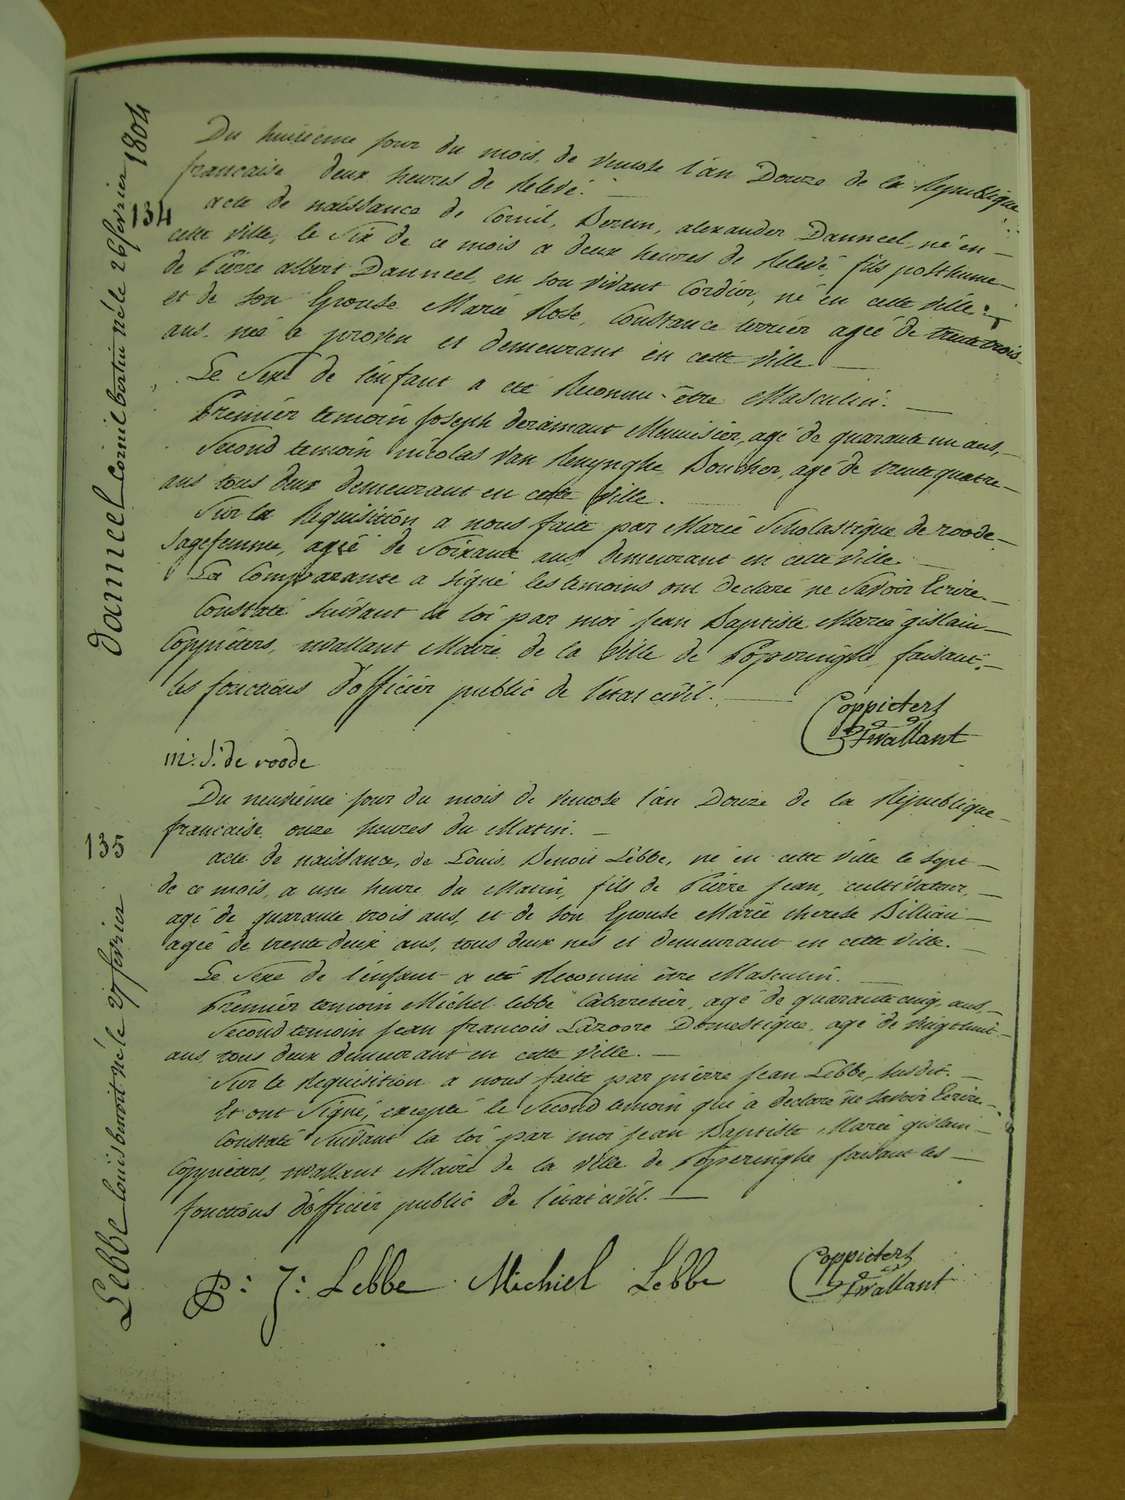 1804
134
Danneel Cornil bertin né le 26 fevrier
Du huitieme jour du mois de ventose l'an Douze de la Republique
francaise deux heures de Relevé.
acte de naissance de Cornil, Bertin, alexander Danneel, né en
cette ville, le Six de ce mois a deux heures de Relevé, fils posthume
de Pierre albert Danneel, en son vivant Cordier, né en cette ville
et de son Epouse Marie Rose, Constance terrier agée de trente trois
ans. née a proven et demeurant en cette ville.
Le Sexe de l'enfant a eté Reconnu être Masculin.
Premier temoin Joseph deramaut Menuisier, agé de quarante un ans,
Second temoin nicolas Van Renynghe Boucher, agé de trente quatre
ans tous deux demeurant en cette Ville.
Sur la Requisition a nous faite par Marie Scholastique de roode
Sagefemme, agée de Soixante ans, demeurant en cette ville.
La Comparante a Signé les temoins ont declaré ne Savoir Ecrire.
Constaté Suivant la loi par moi Jean Baptiste Marie gislain
Coppieters, wallant Maire de la Ville de Poperinghe, faisant
les fonctions d'officier public de l'état civil.
Coppieters
Twallant
m: S: de roode
135
Lebbe louis benoit né le 27 fevrier
Du neuvième jour du mois de ventose l'an Douze de la République
francaise, onze heures du Matin.
acte de naissance, de Louis, Benoit Lebbe, né en cette ville le Sept
de ce mois, a une heure du Matin, fils de Pierre Jean, cultivateur,
agé de quarante trois ans, et de son Epouse Marie therese Billiau
agée de trente deux ans, tous deux nés et demeurant en cette ville.
Le Sexe de l'enfant a eté Reconnu être Masculin.
Premier temoin Michel Lebbe Cabaretier, agé de quarante cinq ans,
Second temoin Jean francois Lazoore Domestique, agé de vingt huit
ans tous deux demeurant en cette ville.
Sur la Requisition a nous faite par pierre Jean Lebbe, Susdit.
Et ont Signé, excepté le Second temoin qui a declaré ne Savoir Ecrire.
Constaté Suivant la loi par moi Jean Baptiste Marie gislain
Coppieters, wallant Maire de la Ville de Poperinghe faisant les
fonctions d'officier public de l'état civil.
P: J: Lebbe Michiel Lebbe
Coppieters
Twallant